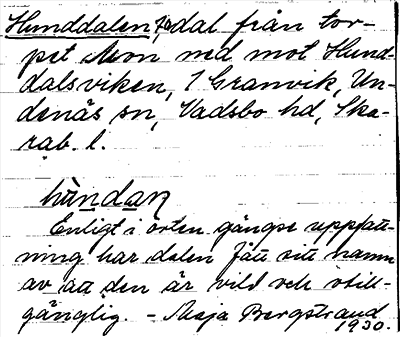 Hunddalen, dal från tor-
pet Mon ned mot Hund-
dalsviken, 1 Granvik, Un-
denäs sn, Vadsbo hd, Ska-
rab. l.
hùndan
Enligt i orten gängse uppfatt-
ning har dalen fått sitt namn
av att den är vild och otill-
gänglig. - Maja Bergstrand
1930.